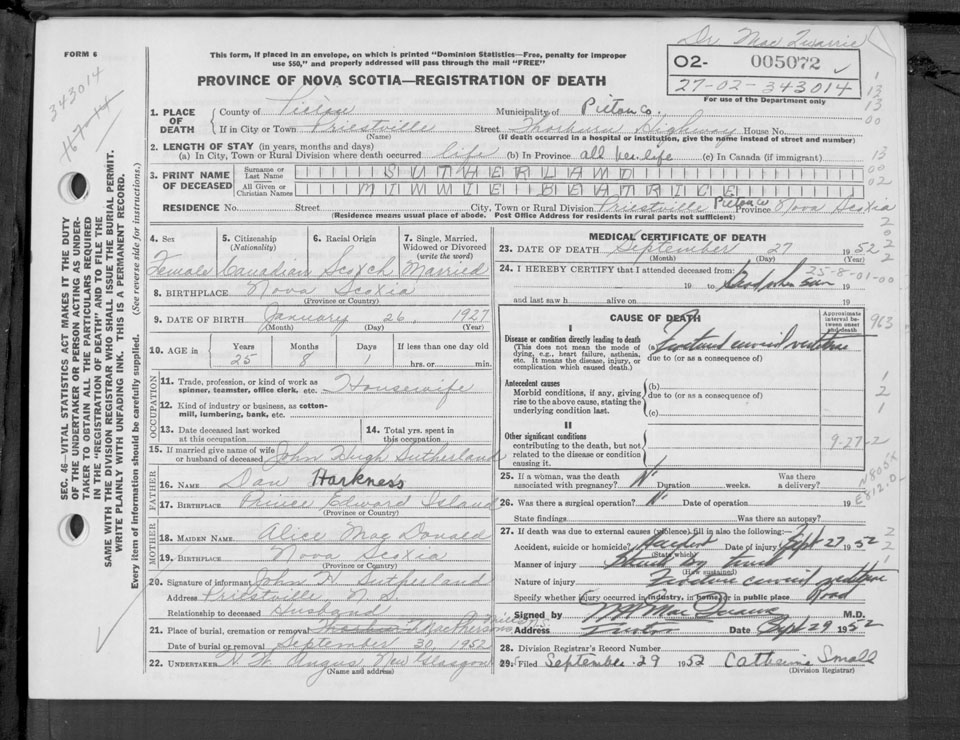 FORM 6
This form, if placed in an envelope, on which is printed "Dominion Statistics—Free, penalty for improper
use $50," and properly addressed will pass through the mail "FREE"
PROVINCE OF NOVA SCOTIA—REGISTRATION OF DEATH
Dr Mac
O2- 005072
27-02-343014
For use of the Department only
343014
SEC. 46—VITAL STATISTICS ACT MAKES IT THE DUTY
OF THE UNDERTAKER OR PERSON ACTING AS UNDER-
TAKER TO OBTAIN ALL THE PARTICULARS REQUIRED
IN THE "REGISTRATION OF DEATH" AND TO FILE THE
SAME WITH THE DIVISION REGISTRAR WHO SHALL ISSUE THE BURIAL PERMIT.
WRITE PLAINLY WITH UNFADING INK. THIS IS A PERMANENT RECORD.
Every item of information should be carefully supplied. (See reverse side for instructions.)
1. PLACE OF DEATH County of Municipality of Pictou Co.
If in City or Town Priestville Street Thorburn Highway House No.
(Name) (If death occurred in a hospital or institution, give the name instead of street and number)
2. LENGTH OF STAY (in years, months and days)
(a) In City, Town or Rural Division where death occurred life (b) In Province all her life (c) In Canada (if immigrant)
3. PRINT NAME OF DECEASED Surname or Last Name SUTHERLAND
All Given or Christian Names MIMMIE BEATRICE
RESIDENCE No. Street City, Town or Rural Division Priestville Pictou Co Province Nova Scotia
(Residence means usual place of abode. Post Office Address for residents in rural parts not sufficient)
4. Sex 5. Citizenship (Nationality) 6. Racial Origin 7. Single, Married, Widowed or Divorced (write the word)
Female Canadian Scotch Married
8. BIRTHPLACE Nova Scotia
(Province or Country)
9. DATE OF BIRTH January 26 1927
(Month) (Day) (Year)
10. AGE in Years Months Days If less than one day old
25 8 1 hrs. or min.
OCCUPATION
11. Trade, profession, or kind of work as
spinner, teamster, office clerk, etc. Housewife
12. Kind of industry or business, as cotton-
mill, lumbering, bank, etc.
13. Date deceased last worked
at this occupation
14. Total yrs. spent in
this occupation
15. If married give name of wife
or husband of deceased John Hugh Sutherland
FATHER
16. NAME Dan Harkness
17. BIRTHPLACE Prince Edward Island
(Province or Country)
MOTHER
18. MAIDEN NAME Alice Mac Donald
19. BIRTHPLACE Nova Scotia
(Province or Country)
20. Signature of informant John H Sutherland
Address Priestville N.S.
Relationship to deceased Husband
21. Place of burial, cremation or removal MacPhersons Mills
Date of burial or removal September 30, 1952
22. UNDERTAKER Angus New Glasgow
(Name and address)
MEDICAL CERTIFICATE OF DEATH
23. DATE OF DEATH September 27 1952
(Month) (Day) (Year)
24. I HEREBY CERTIFY that I attended deceased from:
25-8-01-00
19 to Dead when seen 19
and last saw h alive on 19
CAUSE OF DEATH
Approximate interval between onset and death
963
I
Disease or condition directly leading to death
(This does not mean the mode of dying, e.g., heart failure, asthenia, etc. It means the disease, injury, or complication which caused death.)
(a) Fractured cervical vertebrae
due to (or as a consequence of)
Antecedent causes
Morbid conditions, if any, giving rise to the above cause, stating the underlying condition last.
(b)
due to (or as a consequence of)
(c)
II
Other significant conditions
contributing to the death, but not related to the disease or condition causing it.
9-27-2
25. If a woman, was the death associated with pregnancy? No Duration weeks. Was there a delivery?
26. Was there a surgical operation? No Date of operation 19
State findings Was there an autopsy?
27. If death was due to external causes (violence), fill in also the following:
Accident, suicide or homicide? Accident Date of injury Sept 27 1952
(State which)
Manner of injury Struck by truck
(How sustained)
Nature of injury Fracture cervical vertebrae
Specify whether injury occurred in industry, in home, or in public place Road
Signed by M.D.
Address Date Sept 29 1952
28. Division Registrar's Record Number
29. Filed September 29 1952 Catherine Small
(Division Registrar)